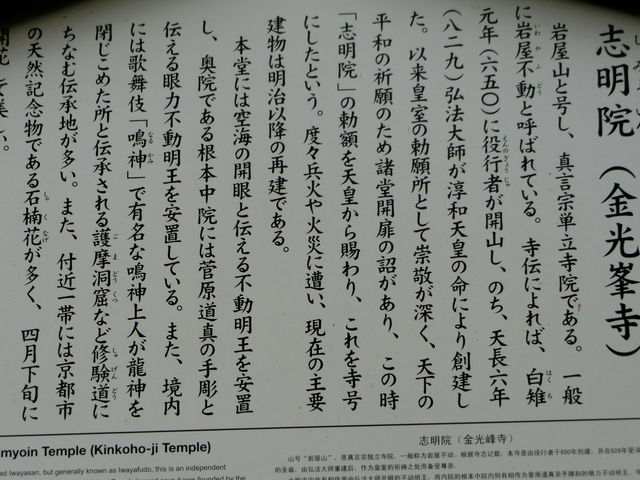 志明院（金光峯寺）
岩屋山と号し、真言宗単立寺院である。一般
に岩屋不動と呼ばれている。寺伝によれば、白雉
元年（六五〇）に役行者が開山し、のち、天長六年
（八二九）弘法大師が淳和天皇の命により創建し
た。以来皇室の勅願所として崇敬が深く、天下の
平和の祈願のため諸堂開扉の詔があり、この時
「志明院」の勅額を天皇から賜わり、これを寺号
にしたという。度々兵火や火災に遭い、現在の主要
建物は明治以降の再建である。
本堂には空海の開眼と伝える不動明王を安置
し、奥院である根本中院には菅原道真の手彫と
伝える眼力不動明王を安置している。また、境内
には歌舞伎「鳴神」で有名な鳴神上人が龍神を
閉じこめた所と伝承される護摩洞窟など修験道に
ちなむ伝承地が多い。また、付近一帯には京都市
の天然記念物である石楠花が多く、四月下旬に
myoin Temple (Kinkoho-ji Temple)
ed Iwayasan, but generally known as Iwayafudo, this is an independent
志明院（金光峰寺）
山号"岩屋山"，是真言宗独立寺院，一般称为岩屋不动。根据寺志记载，本寺是由役行者于650年创建，并在829年